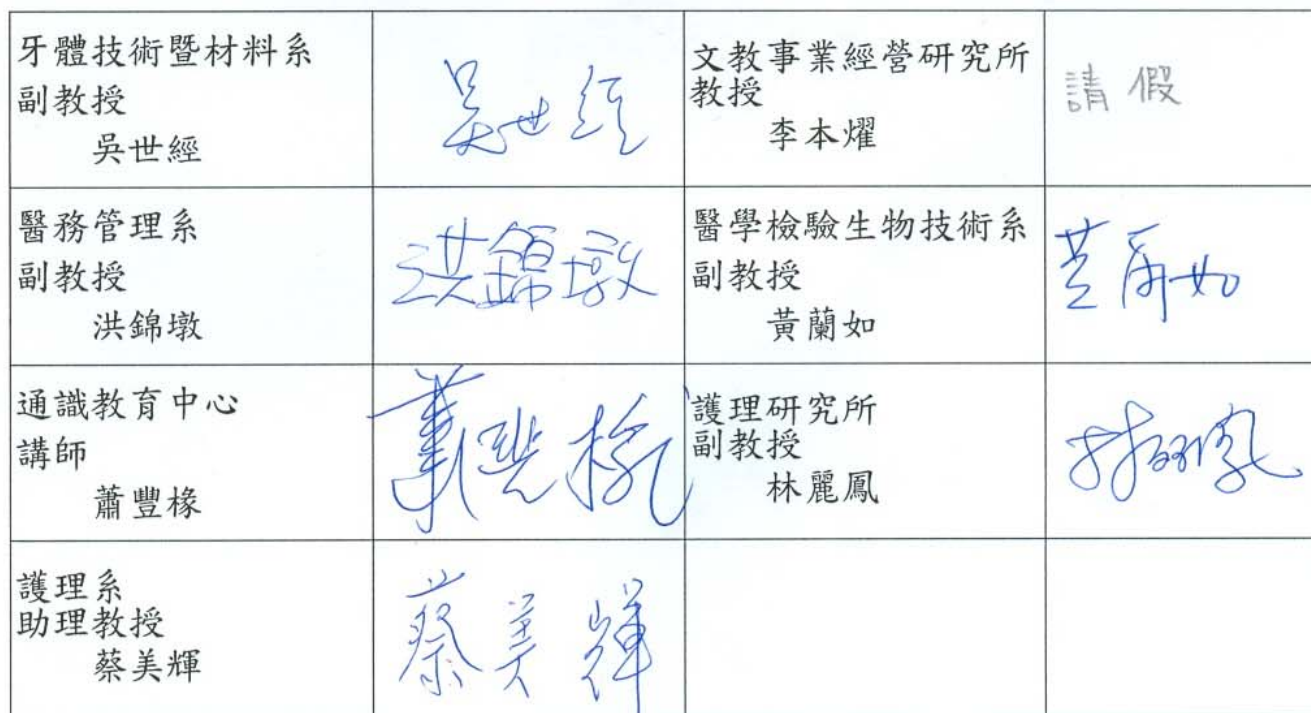 牙體技術暨材料系
副教授
吳世經
吳世經
文教事業經營研究所
教授
李本燿
請假
醫務管理系
副教授
洪錦墩
洪錦墩
醫學檢驗生物技術系
副教授
黃蘭如
黃蘭如
通識教育中心
講師
蕭豐椽
蕭豐椽
護理研究所
副教授
林麗鳳
林麗鳳
護理系
助理教授
蔡美輝
蔡美輝